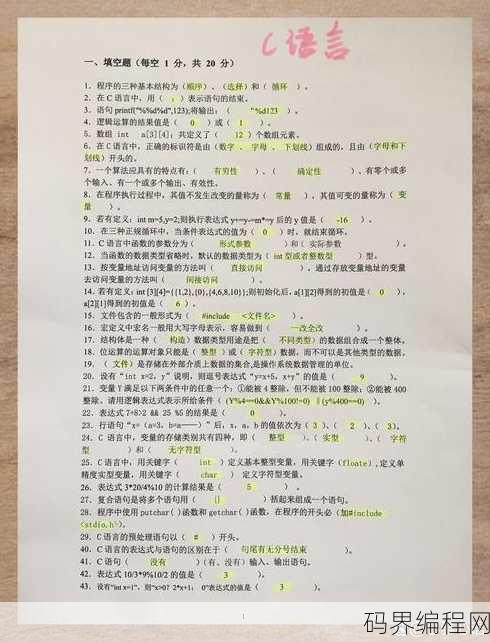 C语言
一、填空题（每空 1 分，共 20 分）
1．程序的三种基本结构为（顺序）、（选择）和（ 循环 ）。
2．在C语言中，用（ ； ）表示语句的结束。
3．语句 printf("%%d%d",123);将输出：（ "%d123 ）。
4．逻辑运算的结果值是（ 0 ）或（ 1 ）。
5．数组 int a[3][4]；共定义了（ 12 ）个数组元素。
6．在C语言中，正确的标识符是由（数字 、 字母 、 下划线）组成的，且由（字母和下
划线）开头的。
7．一个算法应具有的特点有：（ 有穷性 ）、（ 确定性 ）、有零个或多
个输入、有一个或多个输出、有效性。
8．在程序执行过程中，其值不发生改变的量称为（ 常量 ），其值可变的量称为（ 变
量 ）。
9．若有定义：int m=5,y=2;则执行表达式 y+=y-=m*=y 后的 y 值是（ -16 ）。
10．在三种正规循环中，当条件表达式的值为（ 0 ）时，就结束循环。
11．C语言中函数的参数分为（ 形式参数 ）和（ 实际参数 ）。
12．当函数的数据类型省略时，默认的数据类型为（ int 型或者整数型 ）型。
13．按变量地址访问变量的方法叫（ 直接访问 ），通过存放变量地址的变量
去访问变量的方法叫（ 间接访问 ）。
14．若有定义：int [3][4]={{1,2},{0},{4,6,8,10}};则初始化后，a[1][2]得到的初值是（ 0 ），
a[2][1]得到的初值是（ 6 ）。
15．文件包含的一般形式为（ #include <文件名> ）。
16．宏定义中宏名一般用大写字母表示，容易做到（ 一改全改 ）。
17．结构体是一种（ 构造）数据类型用途是把（ 不同类型）的数据组合成一个整体。
18．位运算的运算对象只能是（ 整型 ）或（ 字符型）数据，而不可以是其他类型的数据。
19．（ 文件）是存储在外部介质上数据的集合,是操作系统数据管理的单位。
20．设有"int x=2，y"说明，则逗号表达式"y=x+5，x+y"的值是（ 9 ）。
21．变量Y满足以下两条件中的任意一个：①能被 4 整除，但不能被 100 整除；②能被 400
整除。请用逻辑表达式表示所给条件（ (Y%4==0&&Y%100!=0) ||(y%400==0) ）。
22．表达式 7+8>2 && 25 %5 的结果是（ 0 ）。
23．24．C 语言中，变量的存储类别共有四种，即（ 整型 ）、（ 实型 ）、（ 字符
型 ）和（ 无字符型 ）。
25．C 语言中，用关键字（ int ）定义基本整型变量，用关键字（floate），定义单
精度实型变量，用关键字（ char ）定义字符型变量。
26．表达式 3*20/4%10 的计算结果是（ 5 ）。
27．复合语句是将多个语句用（ {} ）括起来组成一个语句。
28．程序中使用 putchar( )函数和 getchar( )函数，在程序的开头必（加#include
<stdio.h>）。
29．C 语言的预处理语句以（ # ）开头。
40．C 语言的表达式与语句的区别在于（ 句尾有无分号结束 ）。
41．C 语句（ 没有 ）（有、没有）输入、输出语句。
42．表达式 10/3*9%10/2 的值是（ 3 ）。
43．设有"int x=1"，则"x>0？2*x+1：0"表达式的值是（ 3 ）。
码界编程网